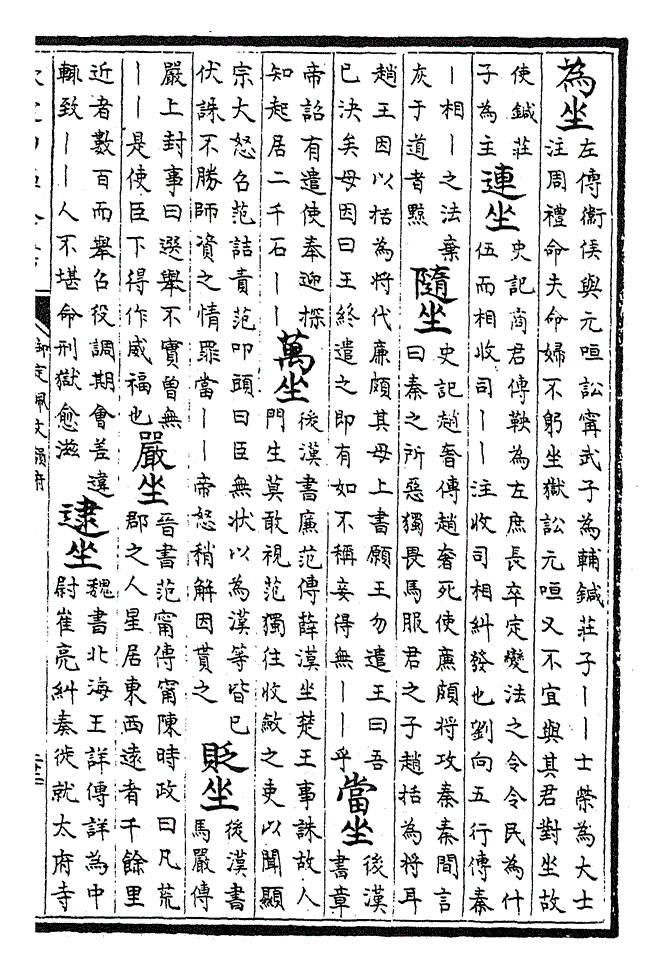 為坐
左傳衞侯與元咺訟甯武子為輔鍼莊子丨丨士榮為大士
注周禮命夫命婦不躬坐獄訟元咺又不宜與其君對坐故
使鍼莊
子為主
連坐
史記商君傳鞅為左庶長卒定變法之令令民為什
伍而相收司丨丨注收司相糾發也劉向五行傳秦
丨相丨之法棄
灰于道者黥
隨坐
史記趙奢傳趙奢死使廉頗將攻秦秦間言
曰秦之所惡獨畏馬服君之子趙括為將耳
趙王因以括為將代廉頗其母上書願王勿遣王曰吾
已決矣母因曰王終遣之即有如不稱妾得無丨丨乎
當坐
後漢
書章
帝詔有遣使奉迎探
知起居二千石丨丨
萬坐
後漢書廉范傳薛漢坐楚王事誅故人
門生莫敢視范獨往收斂之吏以聞顯
宗大怒召范詰責范叩頭曰臣無狀以為漢等皆已
伏誅不勝師資之情罪當丨丨帝怒稍解因貰之
貶坐
後漢書
馬嚴傳
嚴上封事曰選舉不實曾無
丨丨是使臣下得作威福也
嚴坐
晉書范甯傳甯陳時政曰凡荒
郡之人星居東西遠者千餘里
近者數百而舉召役調期會差違
輒致丨丨人不堪命刑獄愈滋
逮坐
魏書北海王詳傳詳為中
尉崔亮糾奏徙就太府寺
御定佩文韻府